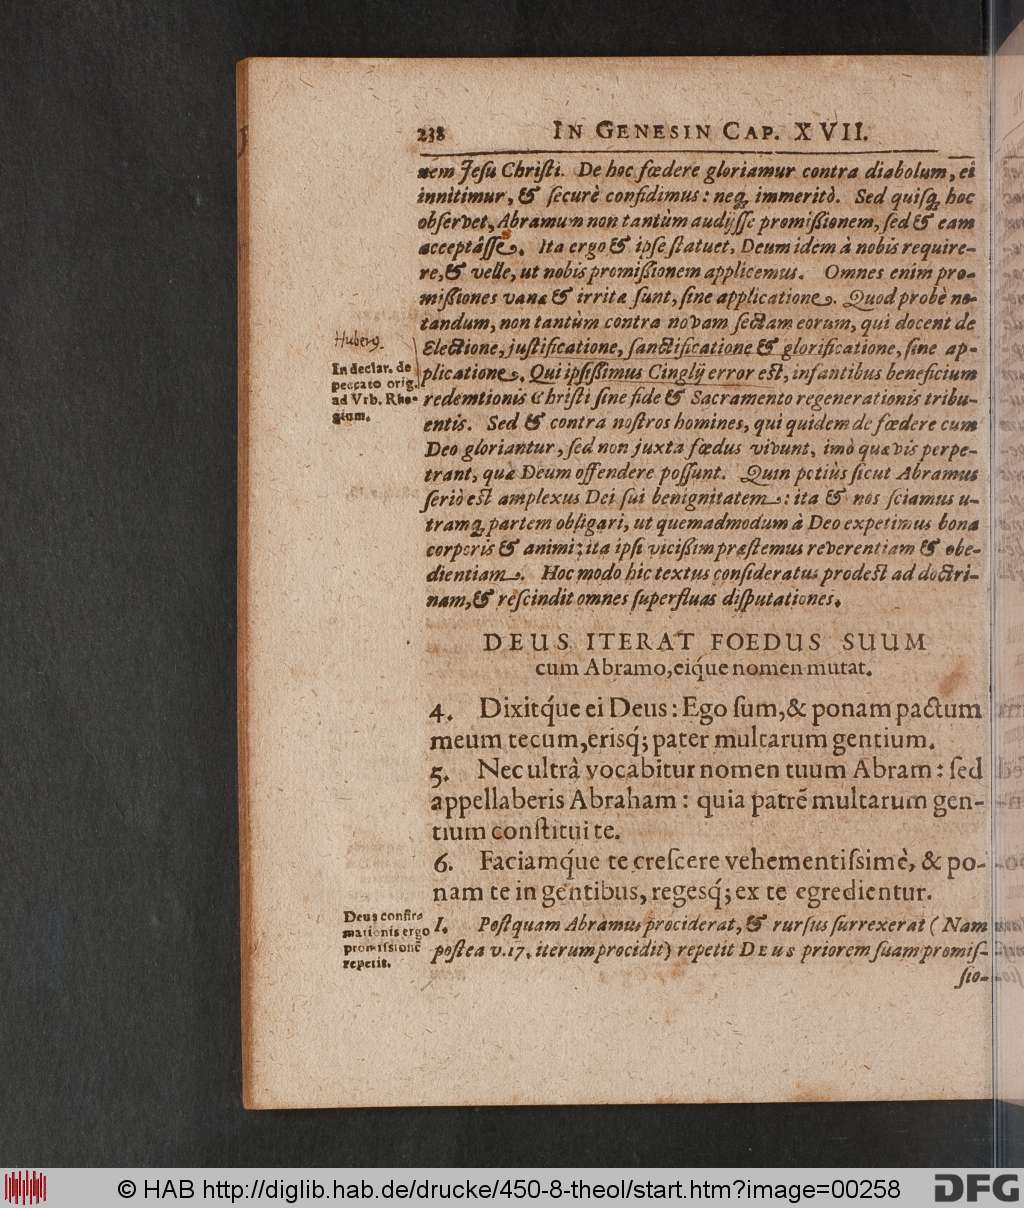 238 IN GENESIN CAP. XVII.
nem Jeſu Chriſti. De hoc fœdere gloriamur contra diabolum, ei
innitimur, & ſecurè confidimus: neq; immeritò. Sed quiſq; hoc
obſervet, Abramum non tantùm audijſſe promiſsionem, ſed & eam
acceptâſſe. Ita ergo & ipſe ſtatuet, Deum idem à nobis require-
re, & velle, ut nobis promiſsionem applicemus. Omnes enim pro-
miſsiones vanæ & irritæ ſunt, ſine applicatione. Quod probè no-
tandum, non tantùm contra novam ſectam eorum, qui docent de
Electione, juſtificatione, ſanctificatione & glorificatione, ſine ap-
plicatione. Qui ipſiſsimus Cinglij error eſt, infantibus beneficium
redemtionis Chriſti ſine fide & Sacramento regenerationis tribu-
entis. Sed & contra noſtros homines, qui quidem de fœdere cum
Deo gloriantur, ſed non juxta fœdus vivunt, imò quævis perpe-
trant, quæ Deum offendere poſſunt. Quin potiùs ſicut Abramus
ſeriò eſt amplexus Dei ſui benignitatem: ita & nos ſciamus u-
tramq; partem obligari, ut quemadmodum à Deo expetimus bona
corporis & animi; ita ipſi viciſsim præſtemus reverentiam & obe-
dientiam. Hoc modo hic textus conſideratus prodeſt ad doctri-
nam, & reſcindit omnes ſuperfluas diſputationes.
Huberg.
In declar. de
peccato orig.
ad Vrb. Rhe-
gium.
DEUS ITERAT FOEDUS SUUM
cum Abramo, eiq́ue nomen mutat.
4. Dixitq́ue ei Deus: Ego ſum, & ponam pactum
meum tecum, erisq́; pater multarum gentium.
5. Nec ultrà vocabitur nomen tuum Abram: ſed
appellaberis Abraham: quia patrē multarum gen-
tium conſtitui te.
6. Faciamq́ue te creſcere vehementiſsimè, & po-
nam te in gentibus, regesq́; ex te egredientur.
Deus confir-
mationis ergo
promiſsionē
repetit.
I. Poſtquam Abramus prociderat, & rurſus ſurrexerat (Nam
poſtea v. 17. iterum procidit) repetit DEUS priorem ſuam promiſ-
ſio-
© HAB http://diglib.hab.de/drucke/450-8-theol/start.htm?image=00258
DFG